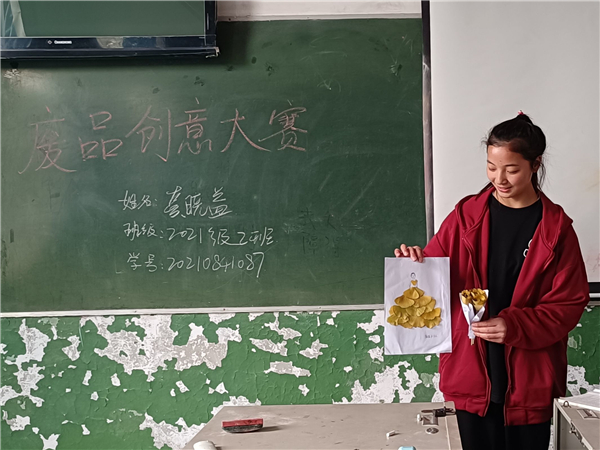 废品创意大赛
姓名:龚晓益
班级:2021级2班
学号:20210841087